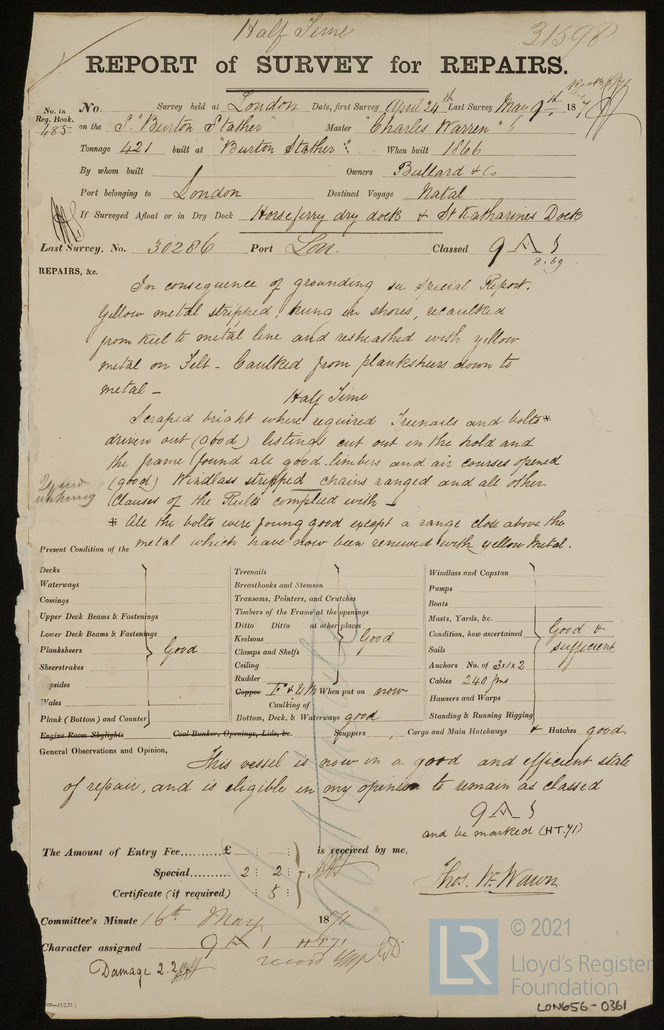 Half Time
31598
REPORT of SURVEY for REPAIRS.
No. in Reg. Book. No. Survey held at London Date, first Survey April 24th Last Survey May 9th 1871
485 on the S. "Burton Stather" Master "Charles Warren"
Tonnage 421 built at "Burton Stather" When built 1866
By whom built Owners Bullard & Co
Port belonging to London Destined Voyage Natal
If Surveyed Afloat or in Dry Dock Horseferry dry dock & St Katharines Dock
Last Survey, No. 30286 Port Lon. Classed 9 A 1
8.69
REPAIRS, &c.
In consequence of grounding see Special Report.
Yellow metal stripped, hung in shores, recaulked
from keel to metal line and resheathed with yellow
metal on Felt - Caulked from planksheers down to
metal -
Half Time
Scraped bright where required Treenails and bolts*
driven out (good) listings cut out in the hold and
the frame found all good. limbers and air courses opened
(good) Windlass stripped chains ranged and all other
Clauses of the Rules complied with -
* All the bolts were found good except a range close above the
metal which have now been renewed with yellow Metal.
Present Condition of the
Decks
Waterways
Comings
Upper Deck Beams & Fastenings
Lower Deck Beams & Fastenings
Planksheers Good
Sheerstrakes
psides
Wales
Plank (Bottom) and Counter
Engine Room Skylights Coal Bunker, Openings, Lids, &c.
Treenails
Breasthooks and Stemson
Transoms, Pointers, and Crutches
Timbers of the Frame at the openings
Ditto Ditto at other places
Keelsons Good
Clamps and Shelfs
Ceiling
Rudder
Copper F & YM When put on now
Caulking of
Bottom, Deck, & Waterways good
Scuppers
Windlass and Capstan
Pumps
Boats
Masts, Yards, &c.
Condition, how ascertained Good &
Sails sufficient
Anchors No. of 3.1.2
Cables 240 fms
Hawsers and Warps
Standing & Running Rigging
Cargo and Main Hatchways & Hatches good
General Observations and Opinion,
This vessel is now in a good and efficient state
of repair, and is eligible in my opinion to remain as classed
9 A 1
and be marked (HT.71)
The Amount of Entry Fee £ : : is received by me,
Special 2 : 2 :
Certificate (if required) : 5 :
Thos. W. Wawn
Committee's Minute 16th May 1871
Character assigned 9 A 1 HT71
Damage 2.2
© 2021
LR
Lloyd's Register
Foundation
LON656-0361